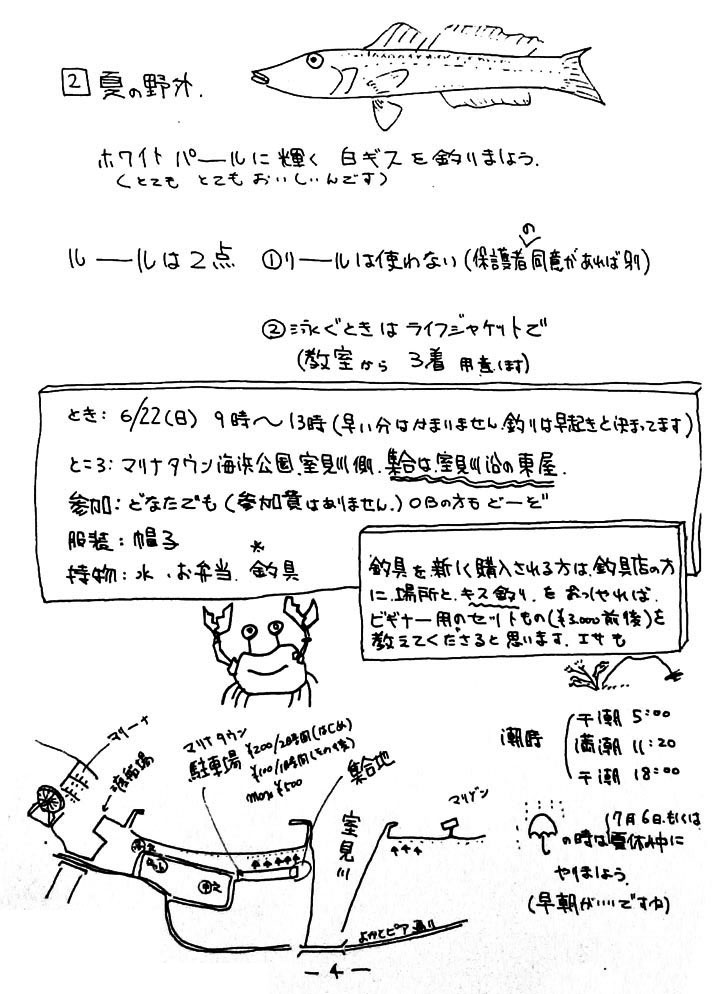 2 夏の野外.
ホワイトパールに輝く 白ギスを釣りましょう.
(とても とてもおいしいんです)
ルールは2点 ①リールは使わない(保護者の同意があれば別)
②泳ぐときはライフジャケットで
(教室から 3着 用意します)
とき: 6/22(日) 9時〜13時(早い分はかまりません.釣りは早起きと決まってます)
ところ: マリナタウン海浜公園.室見川側.集合は.室見川沿の東屋.
参加: どなたでも(参加費はありません.)OBの方もどーぞ
服装: 帽子
持物: 水、お弁当. 釣具*
釣具を新しく購入される方は.釣具店の方
に場所と.キス釣り.をおっしゃれば.
ビギナー用のセットもの(¥3.000前後)を
教えてくださると思います.エサも
潮時
干潮 5:00
満潮 11:20
干潮 18:00
マリーナ
渡船場
マリナタウン
駐車場
¥200/2時間(はじめ)
¥100/1時間(その後)
max ¥500
集合地
室見川
マリゾン
よかとピア通り
の時は
(7月6日.もしくは
夏休み中に
やりましょう.
(早朝がいいですね)
-4-